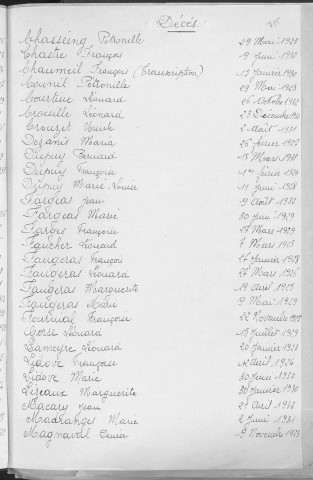 Décès
Chasseing Pétronille 29 Mai 1928
Chastre François 9 Juin 1932
Chaumeil François (Transcription) 13 Janvier 1930
Counil Pétronille 29 Mai 1923
Courteue Léonard 26 Octobre 1932
Croisille Léonard 23 Décembre
Crouzet 2 Août 1931
Dezanis Maria 26 février
Dupuy Bernard 15 Mars 1931
Dupuy Françoise 1er février
Dupuy Marie Louise 11 Juin 1928
Fargeas Jean 9 Août 1932
Fargeas Marie 30 Juin 1929
Farges Françoise 17 Mars 1929
Faucher Léonard 7 Mars
Faugeras François 27 Janvier 1928
Faugeras Léonard 27 Mars 1926
Faugeras Marguerite 19 Avril
Faugeras Marie 9 Mai 1929
Fournial Françoise 22 Novembre 1925
Gorse Léonard 13 Juillet 1929
Lameyre Léonard 20 Janvier
Lidove Françoise 12 Avril 1926
Lidove Marie 30 Juin
Lizeaux Marguerite 30 Janvier 1930
Macary Jean 21 Avril
Madranges Marie 2 Juin 1931
Magnaval 9 Novembre